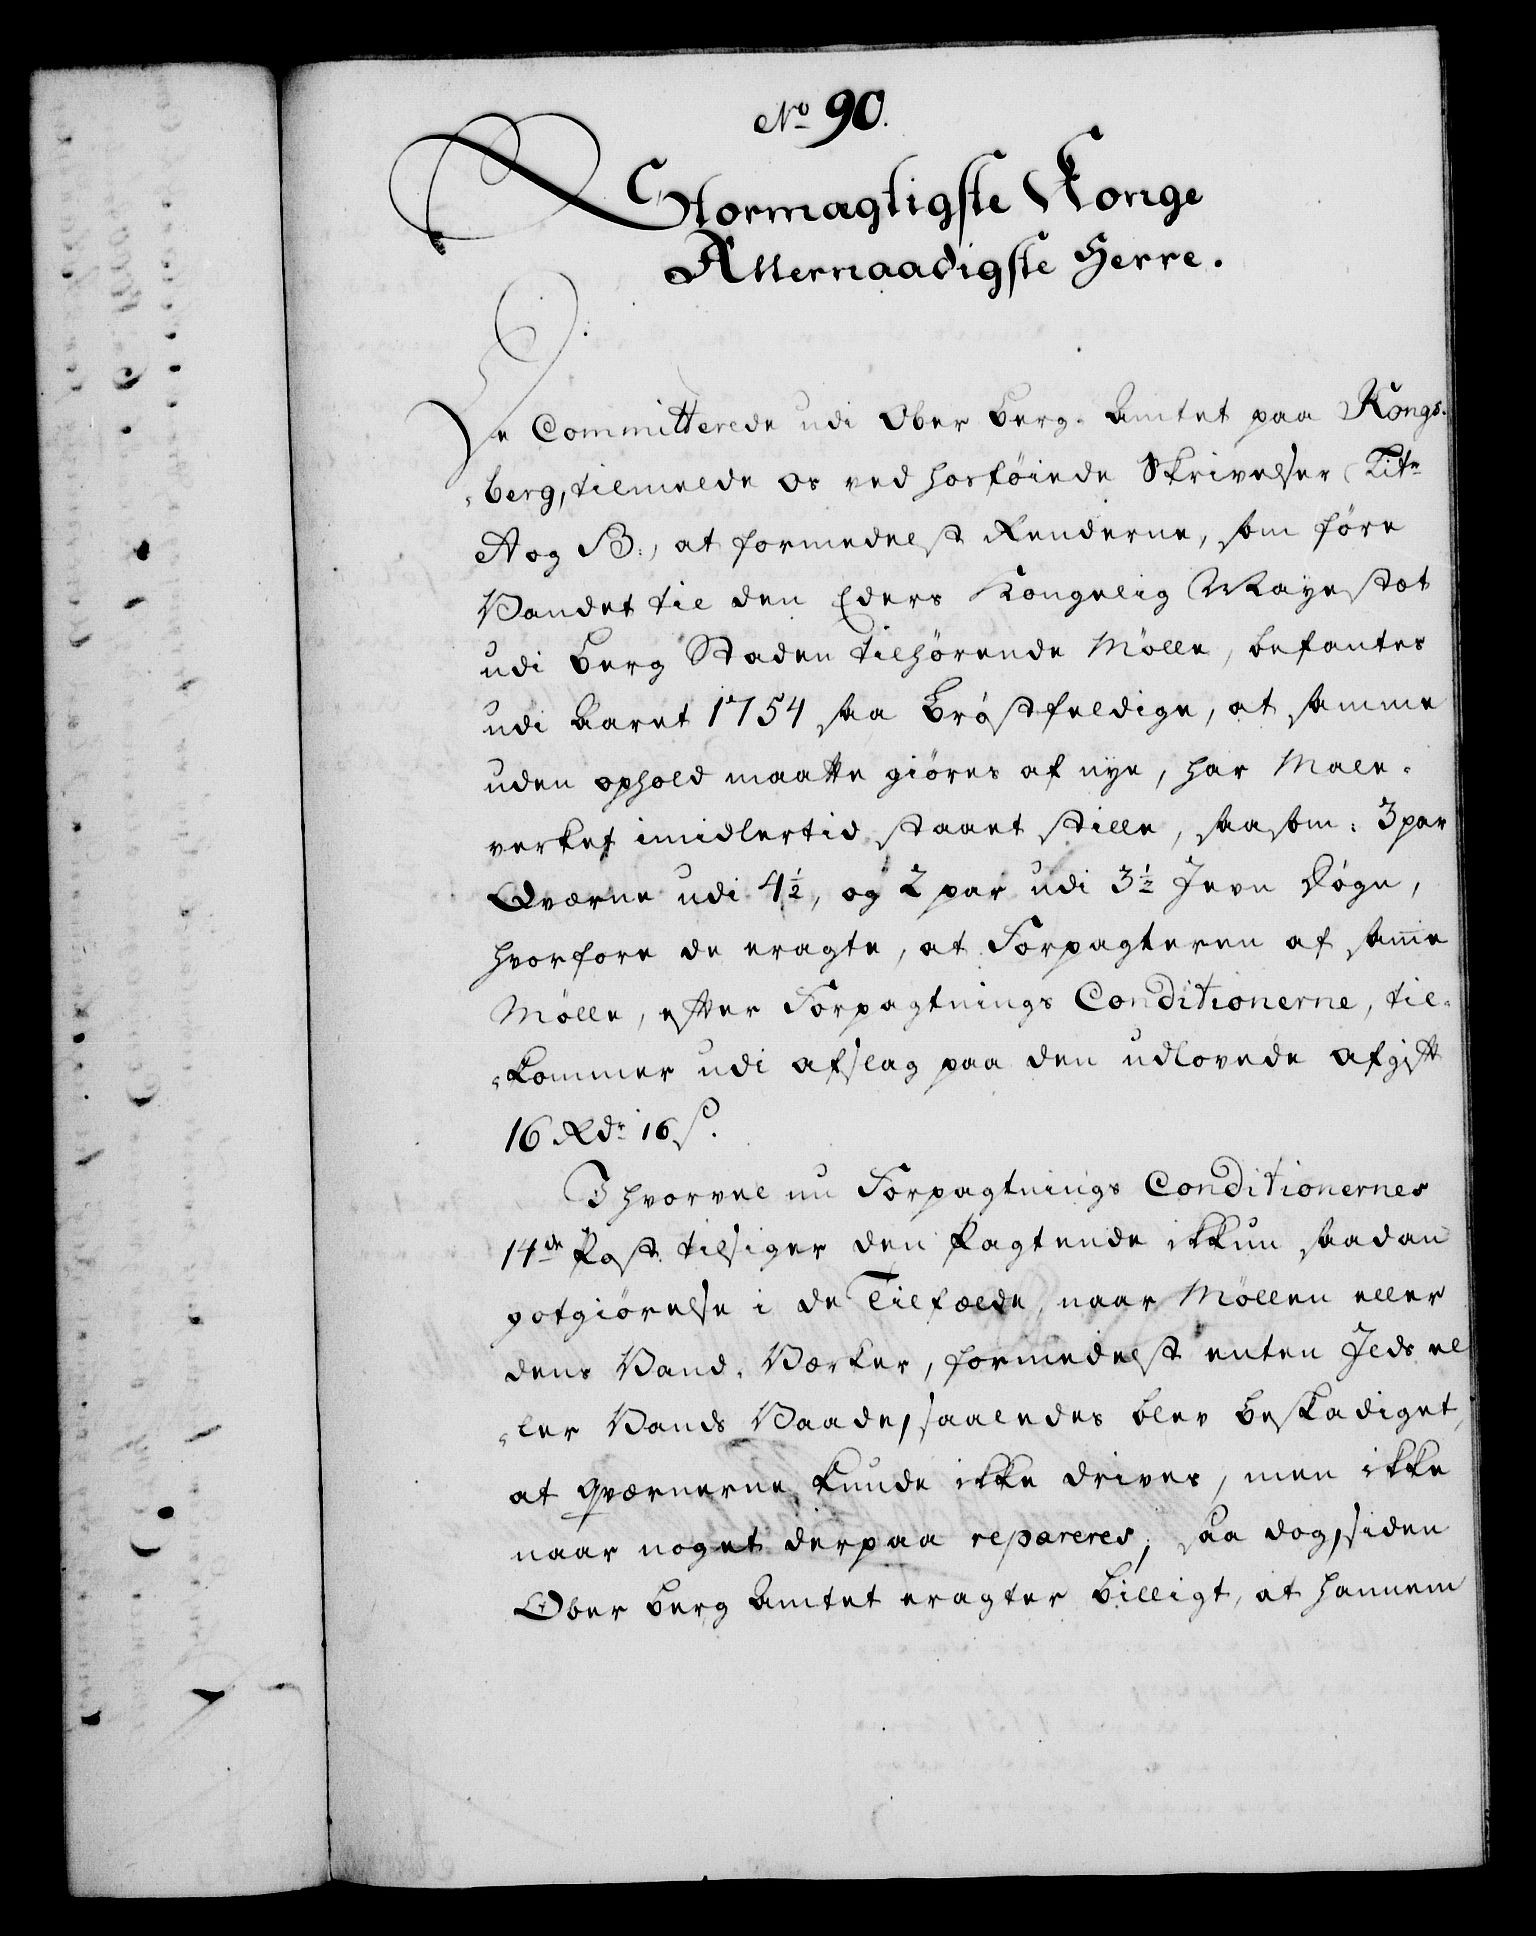 No 90.
Stormagtigste Konge
Allernaadigste Herre.
De Committerede udi Ober Berg-Amtet paa Kongs-
-berg, tilmelde os ved hosföiede Skrivelser Litr
A og B:, at formedelst Renderne, som före
Vandet til den Eders Kongelig Mayestæt
udi Berg Staden tilhörende Mölle, befantes
udi Aaret 1754 saa Bröstfeldige, at samme
uden ophold maatte giöres af nye, har Male-
verket imidlertid staaet stille, saasom: 3 par
Qværne udi 4½, og 2 par udi 3½ Jevn Dögn,
hvorfore de eragte, at Forpagteren af samme
Mölle, efter Forpagtnings Conditionerne, til-
-kommer udi afslag paa den udlovede afgift
16 Rdr 16 s.
I hvorvel nu Forpagtnings Conditionernes
14de Post tilsiger den Pagtende ikkun saadan
gotgiörelse i de Tilfælde, naar Möllen eller
dens Vand-Værker, formedelst enten Ilds el
-ler Vands Vaade, saaledes blev beskadiget,
at Qværnerne kunde ikke drives, men ikke
naar noget derpaa repareres; saa dog, siden
Ober Berg Amtet eragter billigt, at hannem